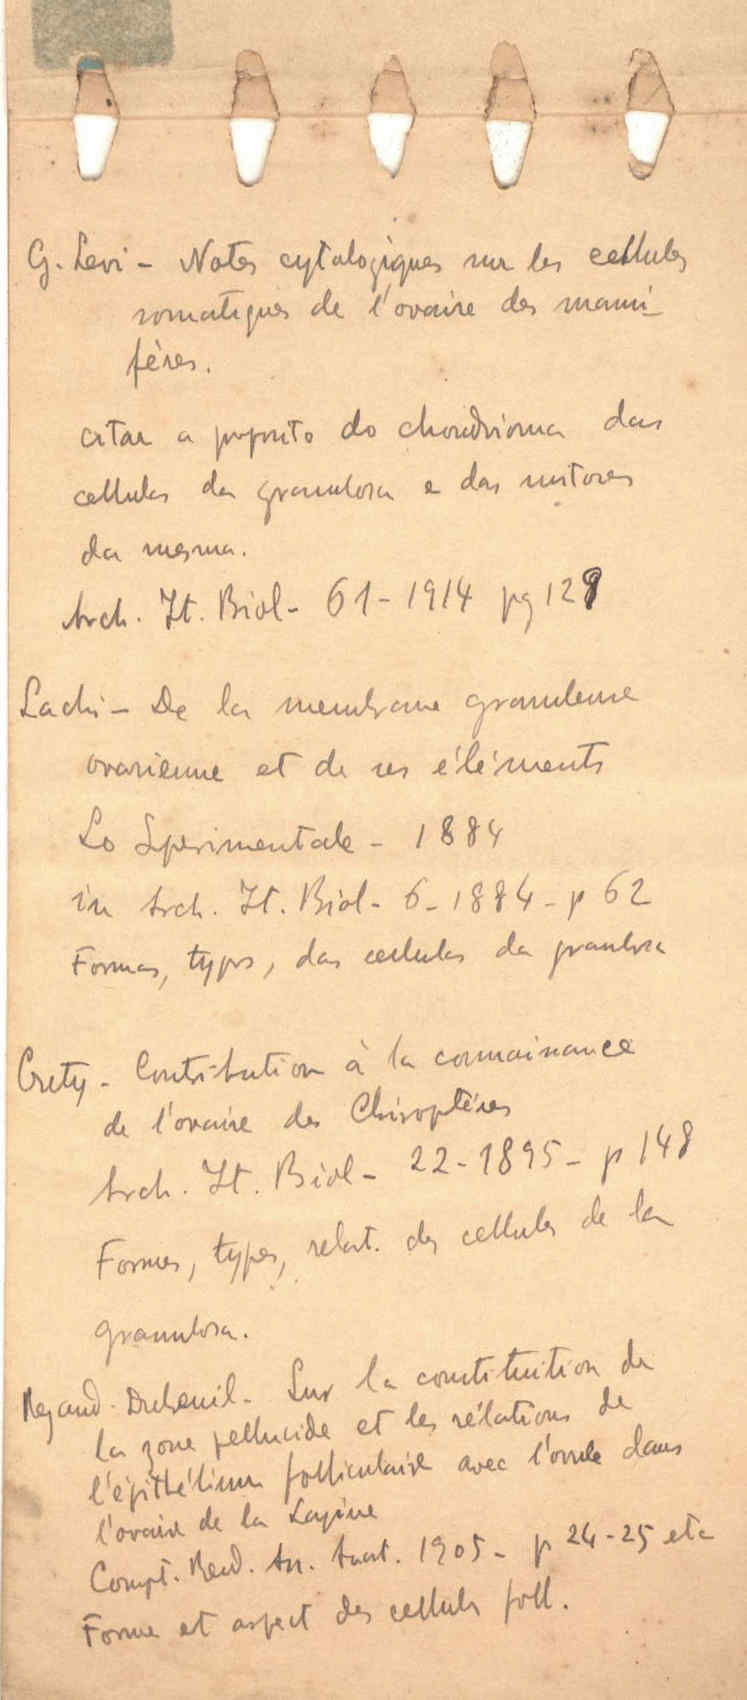 G. Levi - Notes cytologiques sur les cellules
somatiques de l'ovaire des mami-
fères.
citar a proposito do chondrioma das
cellulas da granulosa e das mitoses
da mesma.
Arch. It. Biol - 61 - 1914 pg 129
Lachi - De la membrane granuleuse
ovarienne et de ses éléments
Lo Sperimentale - 1884
in Arch. It. Biol - 6 - 1884 - p 62
Formas, typos, das cellulas da granulosa
Crety - Contribution à la connaissance
de l'ovaire des Chiroptères
Arch. It. Biol - 22 - 1895 - p 148
Formes, types, relat. des cellules de la
granulosa.
Regaud - Dubreuil - Sur la constitution de
la zone pellucide et les rélations de
l'épithélium folliculaire avec l'ovule dans
l'ovaire de la Lapine
Compt. Rend. Ass. Anat. 1905 - p 24-25 etc
Forme et aspect des cellules foll.